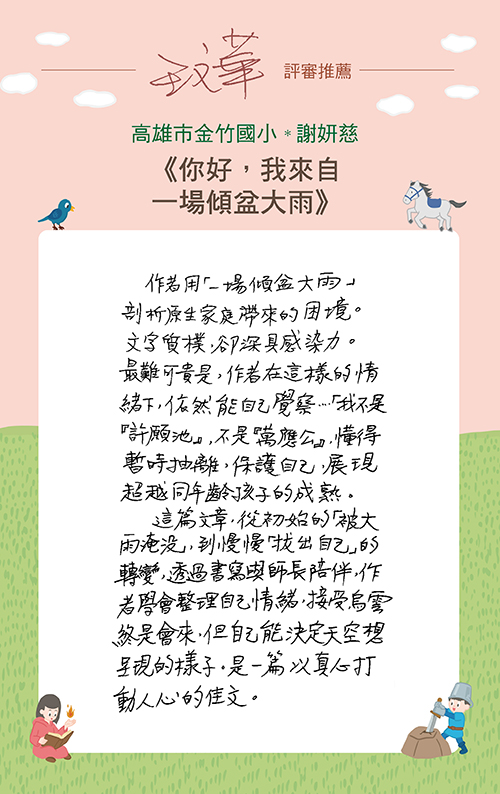 王文華
評審推薦
高雄市金竹國小＊謝妍慈
《你好，我來自
一場傾盆大雨》
作者用「一場傾盆大雨」
剖析原生家庭帶來的困境。
文字質樸，卻深具感染力。
最難可貴是，作者在這樣的情
緒下，依然能自己覺察…「我不是
『許願池』，不是『萬應公』，懂得
暫時抽離，保護自己，展現
超越同年齡孩子的成熟。
這篇文章，從初始的「被大
雨淹没」，到慢慢「拔出自己」的
轉變，透過書寫與師長陪伴，作
者學會整理自己情緒，接受烏雲
終是會來，但自己能決定天空想
呈現的樣子。是一篇以真心打
動人心的佳文。